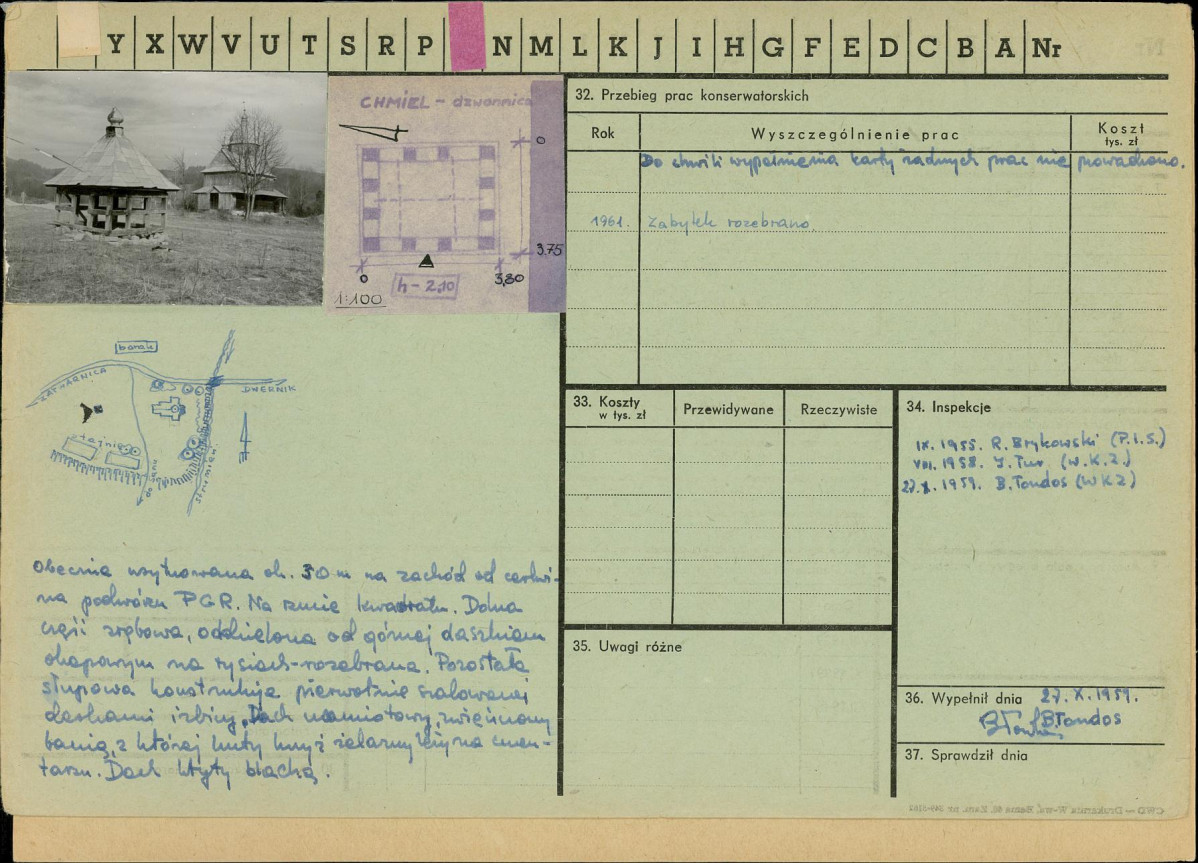 Y X W V U T S R P N M L K J I H G F E D C B A Nr
CHMIEL - dzwonnica
0
3.75
0
3,80
h - 2,10
1:100
barak
ZATWARNICA
DWERNIK
stajnie
do Sanu
strumień
Obecnie usytuowana ok. 30 m na zachód od cerkwi-
na podwórzu PGR. Na rzucie kwadratu. Dolna
część zrębowa, oddzielona od górnej daszkiem
okapowym na rysiach-rozebrana. Pozostała
słupowa konstrukcja pierwotnie szalowanej
deskami izbicy. Dach namiotowy, zwieńczony
banią, z której kuty krzyż żelazny leży na cmen-
tarzu. Dach kryty blachą.
32. Przebieg prac konserwatorskich
Rok Wyszczególnienie prac Koszt
tys. zł
Do chwili wypełnienia karty żadnych prac nie prowadzono.
1961. Zabytek rozebrano
33. Koszty
w tys. zł
Przewidywane Rzeczywiste
34. Inspekcje
IX. 1955. R. Brykowski (P.I.S.)
VIII. 1958. J. Tur. (W.K.Z.)
27.X.1959. B. Tondos (WKZ)
35. Uwagi różne
36. Wypełnił dnia 27.X.1959.
BTondos
37. Sprawdził dnia